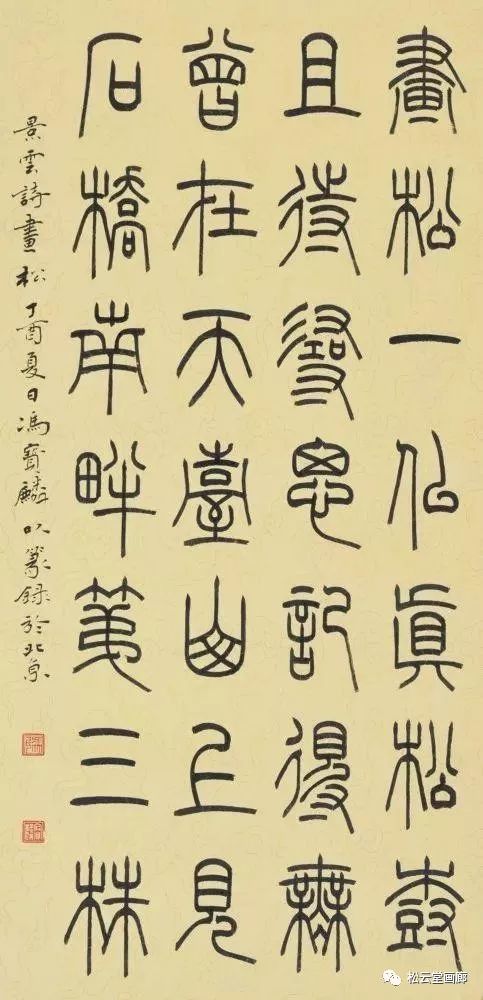 畫松一似眞松樹
且待尋思記得無
曾在天臺山上見
石橋南畔第三株
景雲詩畫松 丁酉夏日馮寶麟以篆録於北京
松云堂画廊